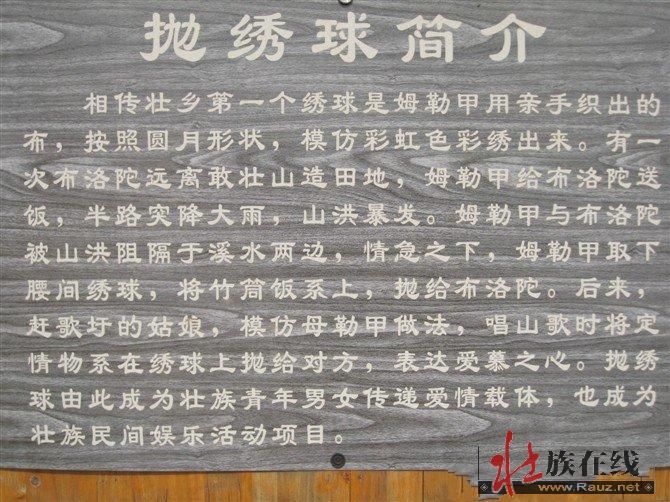 抛绣球简介
相传壮乡第一个绣球是姆勒甲用亲手织出的
布，按照圆月形状，模仿彩虹色彩绣出来。有一
次布洛陀远离敢壮山造田地，姆勒甲给布洛陀送
饭，半路突降大雨，山洪暴发。姆勒甲与布洛陀
被山洪阻隔于溪水两边，情急之下，姆勒甲取下
腰间绣球，将竹筒饭系上，抛给布洛陀。后来，
赶歌圩的姑娘，模仿母勒甲做法，唱山歌时将定
情物系在绣球上抛给对方，表达爱慕之心。抛绣
球由此成为壮族青年男女传递爱情载体，也成为
壮族民间娱乐活动项目。
壮族在线
www.Rauz.net